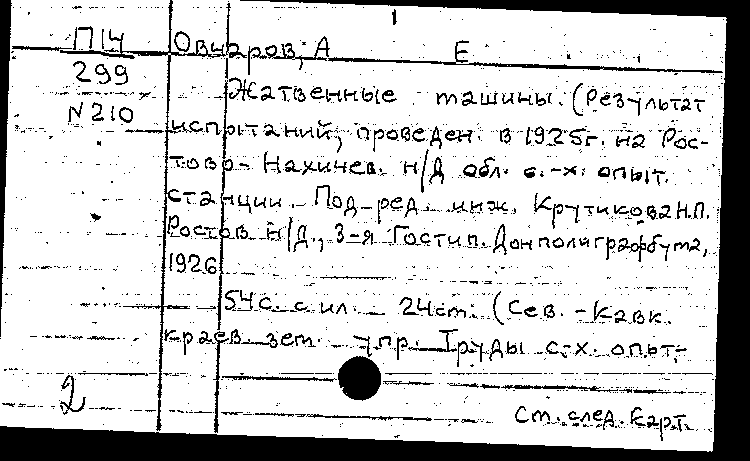 П14 Овчаров, А Е
299
N 210
Жатвенные машины. (Результат
испытаний, проведен. в 1925г. на Рос-
тово-Нахичев. н/Д обл. с.-х. опыт.
станции. Под ред. инж. Крутикова Н.П.
Ростов н/Д., 3-я Гостип. Донполиграфбума,
1926
54с. с ил. 24см. (Сев.-Кавк.
краев. зем. упр. Труды с.-х. опыт-
2
См. след. карт.